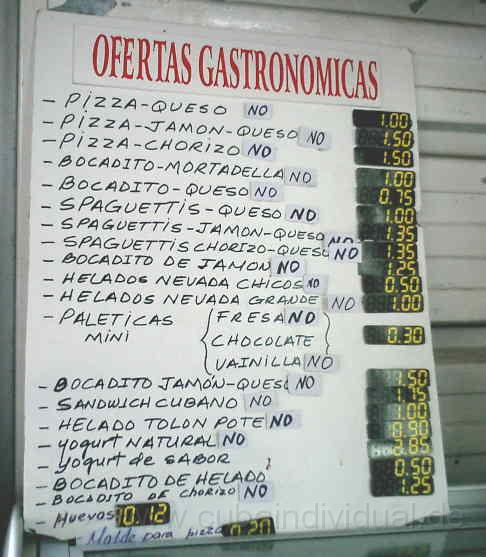 OFERTAS GASTRONOMICAS
- PIZZA-QUESO NO 1.00
- PIZZA-JAMON-QUESO NO 1.50
- PIZZA-CHORIZO NO 1.50
- BOCADITO-MORTADELLA NO 1.00
- BOCADITO-QUESO NO 0.75
- SPAGUETTIS-QUESO NO 1.00
- SPAGUETTIS-JAMON-QUESO NO 1.35
- SPAGUETTIS CHORIZO-QUESO NO 1.35
- BOCADITO DE JAMON NO 1.25
- HELADOS NEVADA CHICOS NO 0.50
- HELADOS NEVADA GRANDE NO 1.00
- PALETICAS MINI 0.30
FRESA NO
CHOCOLATE
VAINILLA NO
- BOCADITO JAMÓN-QUESO NO 1.50
- SANDWICH CUBANO NO 1.75
- HELADO TOLON POTE NO 1.00
- yogurt NATURAL NO 0.90
- yogurt de SABOR NO 0.85
- BOCADITO DE HELADO 0.50
- BOCADITO DE CHORIZO NO 1.25
- Huevos 0.12
- Molde para pizza 0.20
www.cubaindividual.de